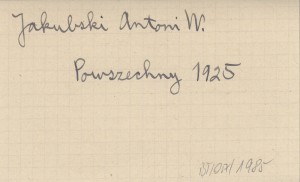 Jakubski Antoni W.
Powszechny 1925
/1985